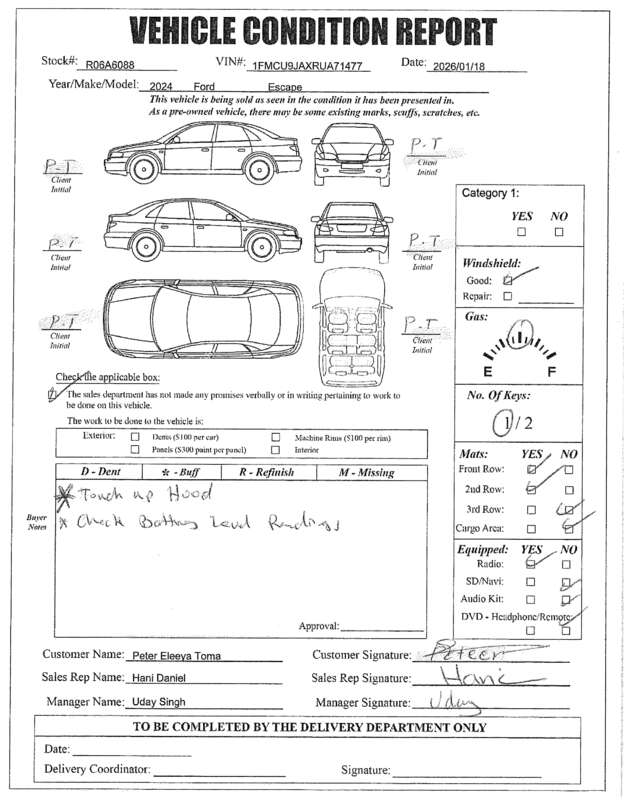 VEHICLE CONDITION REPORT
Stock#: R06A6088 VIN#: 1FMCU9JAXRUA71477 Date: 2026/01/18
Year/Make/Model: 2024 Ford Escape
This vehicle is being sold as seen in the condition it has been presented in.
As a pre-owned vehicle, there may be some existing marks, scuffs, scratches, etc.
P-T
Client
Initial
P-T
Client
Initial
P-T
Client
Initial
P-T
Client
Initial
P-T
Client
Initial
P-T
Client
Initial
Category 1:
YES NO
Windshield:
Good:
Repair:
Gas:
E F
No. Of Keys:
1/2
Check the applicable box:
The sales department has not made any promises verbally or in writing pertaining to work to
be done on this vehicle.
The work to be done to the vehicle is:
Exterior: Dents ($100 per car) Machine Rims ($100 per rim)
Panels ($300 paint per panel) Interior
D - Dent * - Buff R - Refinish M - Missing
Buyer
Notes
* Touch up Hood
* Check Battery Level Readings
Approval:
Mats: YES NO
Front Row:
2nd Row:
3rd Row:
Cargo Area:
Equipped: YES NO
Radio:
SD/Navi:
Audio Kit:
DVD - Headphone/Remote:
Customer Name: Peter Eleeya Toma Customer Signature: Peteer
Sales Rep Name: Hani Daniel Sales Rep Signature: Hani
Manager Name: Uday Singh Manager Signature: Uday
TO BE COMPLETED BY THE DELIVERY DEPARTMENT ONLY
Date:
Delivery Coordinator: Signature: